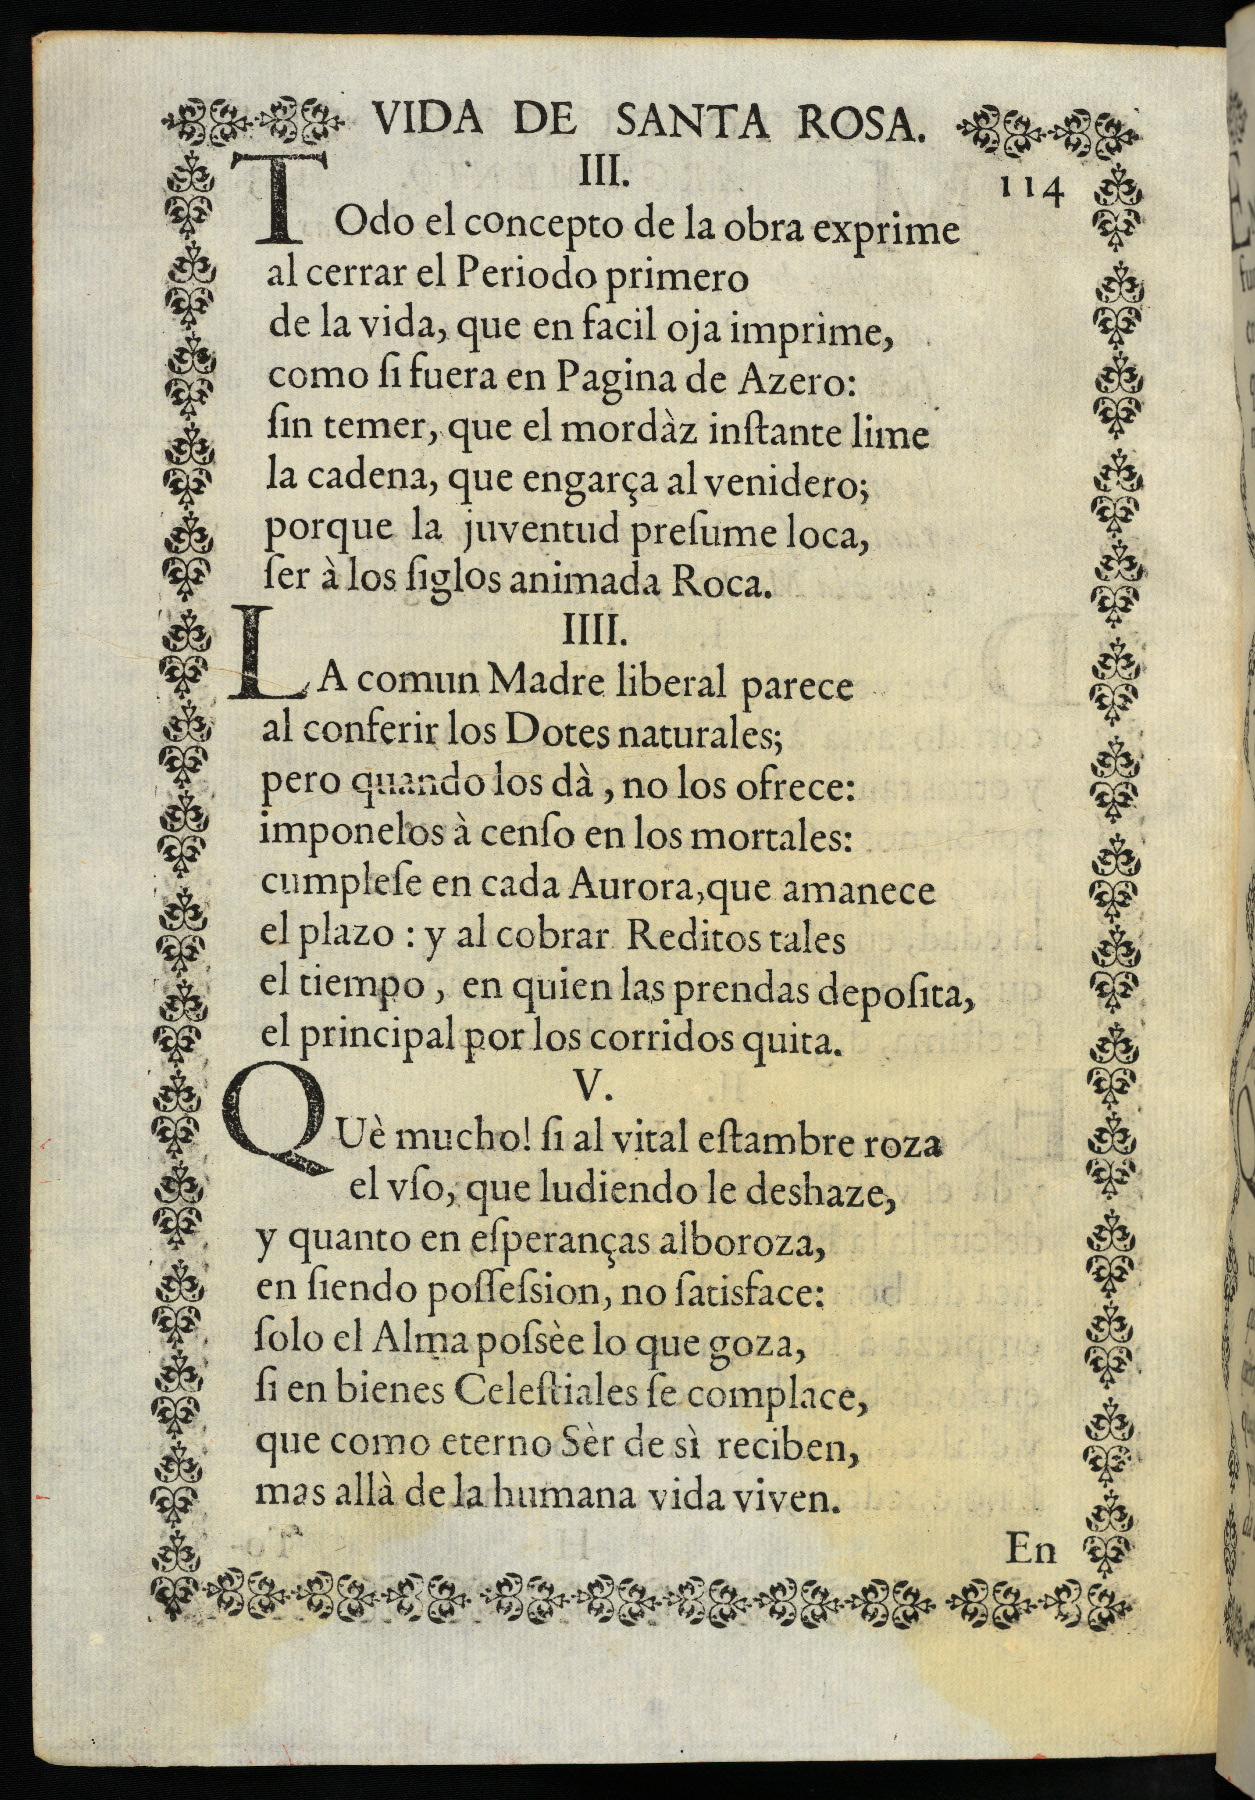 VIDA DE SANTA ROSA.
III.
114
TOdo el concepto de la obra exprime
al cerrar el Periodo primero
de la vida, que en facil oja imprime,
como ſi fuera en Pagina de Azero:
ſin temer, que el mordàz inſtante lime
la cadena, que engarça al venidero;
porque la juventud preſume loca,
ſer à los ſiglos animada Roca.
IIII.
LA comun Madre liberal parece
al conferir los Dotes naturales;
pero quando los dà, no los ofrece:
imponelos à cenſo en los mortales:
cumpleſe en cada Aurora, que amanece
el plazo: y al cobrar Reditos tales
el tiempo, en quien las prendas depoſita,
el principal por los corridos quita.
V.
QUè mucho! ſi al vital eſtambre roza
el vſo, que ludiendo le deshaze,
y quanto en eſperanças alboroza,
en ſiendo poſſeſsion, no ſatisface:
ſolo el Alma poſsèe lo que goza,
ſi en bienes Celeſtiales ſe complace,
que como eterno Sèr de sì reciben,
mas allà de la humana vida viven.
En